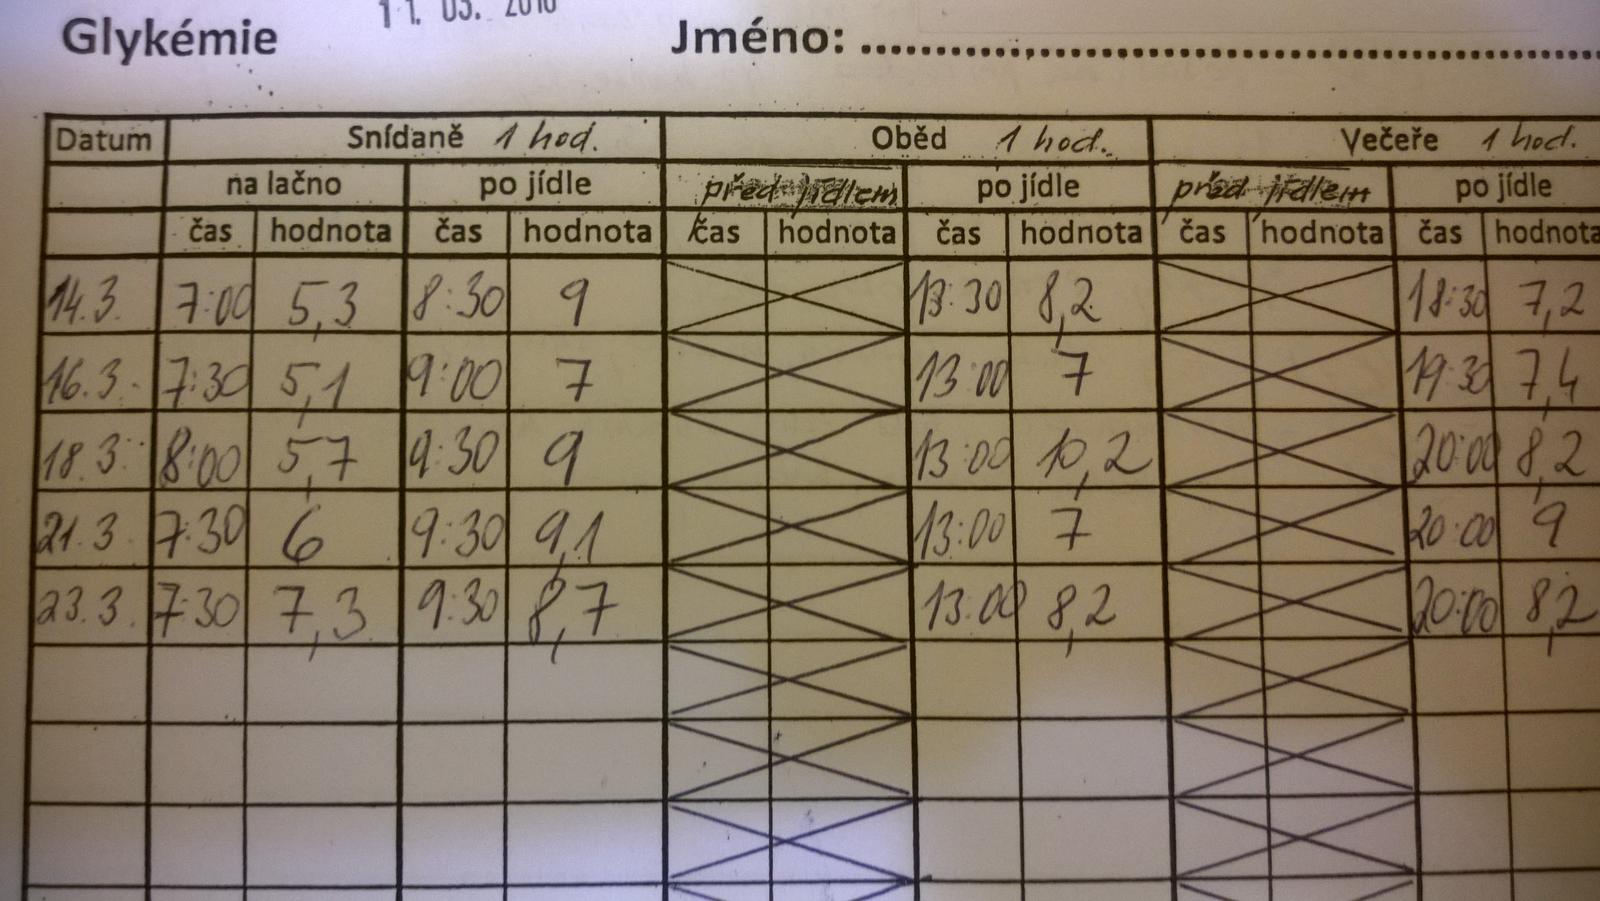 11. 03. 2016
Glykémie Jméno: ........................................
Datum Snídaně 1 hod. Oběd 1 hod. Večeře 1 hod.
na lačno po jídle před jídlem po jídle před jídlem po jídle
čas hodnota čas hodnota čas hodnota čas hodnota čas hodnota čas hodnota
14.3. 7:00 5,3 8:30 9 13:30 8,2 18:30 7,2
16.3. 7:30 5,1 9:00 7 13:00 7 19:30 7,4
18.3. 8:00 5,7 9:30 9 13:00 10,2 20:00 8,2
21.3 7:30 6 9:30 9,1 13:00 7 20:00 9
23.3. 7:30 7,3 9:30 8,7 13:00 8,2 20:00 8,2